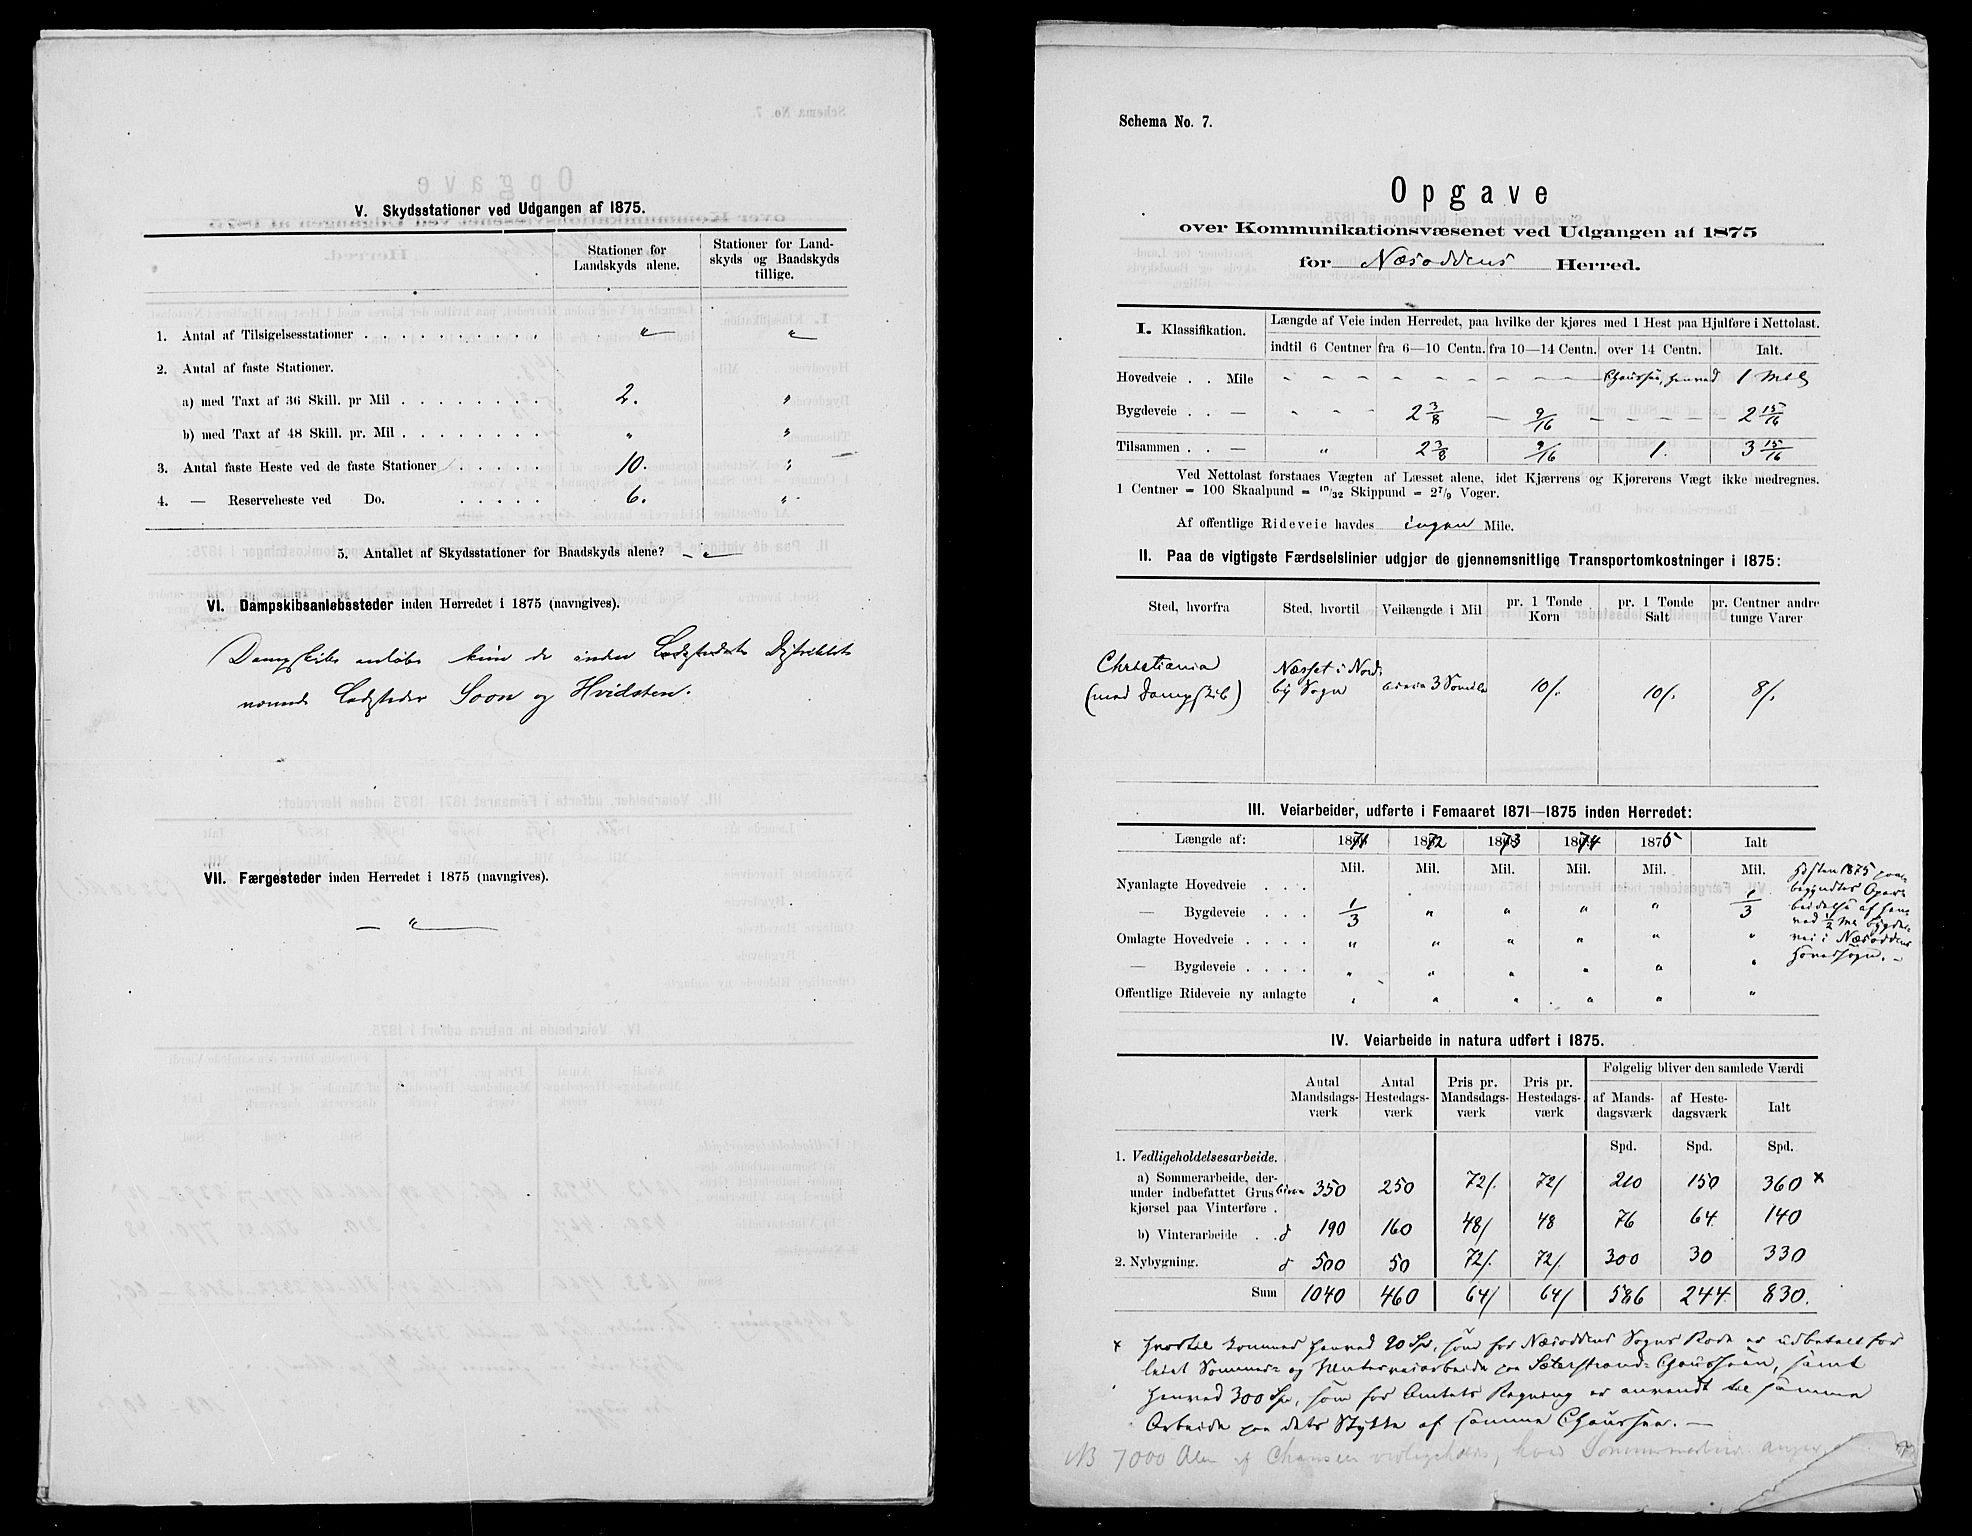 V. Skydsstationer ved Udgangen af 1875.
Stationer for Landskyds alene. | Stationer for Land- skyds og Baadskyds tillige.
1. Antal af Tilsigelsesstationer . . . . . . . . . . „ „
2. Antal af faste Stationer.
a) med Taxt af 36 Skill. pr Mil . . . . . . . . 2. „
b) med Taxt af 48 Skill. pr. Mil . . . . . . . . „ „
3. Antal faste Heste ved de faste Stationer . . . . . 10. „
4. — Reserveheste ved Do. . . . . . 6. „
5. Antallet af Skydsstationer for Baadskyds alene? – „ –
VI. Dampskibsanløbssteder inden Herredet i 1875 (navngives).
Dampskibe anløbe kun de under Ladestedets Distrikt
nævnte Ladesteder Soon og Hvidsten.
VII. Færgesteder inden Herredet i 1875 (navngives).
– „ –
Schema No. 7.
Opgave
over Kommunikationsvæsenet ved Udgangen af 1875
for Næsoddens Herred.
I. Klassifikation. | Længde af Veie inden Herredet, paa hvilke der kjøres med 1 Hest paa Hjulføre i Nettolast.
indtil 6 Centner | fra 6—10 Centn. | fra 10—14 Centn. | over 14 Centn. | Ialt.
Hovedveie . . Mile – – – – – – – – – Chaussee, henved 1 Mil
Bygdeveie . . — – – – 2 3/8 – 9/16 – – – – 2 15/16
Tilsammen . . — „ 2 3/8 9/16 1. 3 15/16
Ved Nettolast forstaaes Vægten af Læsset alene, idet Kjærrens og Kjørerens Vægt ikke medregnes.
1 Centner = 100 Skaalpund = 10/32 Skippund = 2 7/9 Voger.
Af offentlige Rideveie havdes ingen Mile.
II. Paa de vigtigste Færdselslinier udgjør de gjennemsnitlige Transportomkostninger i 1875:
Sted, hvorfra | Sted, hvortil | Veilængde i Mil | pr. 1 Tønde Korn | pr. 1 Tønde Salt | pr. Centner andre tunge Varer
Christiania (med Dampskib) | Næsset i Nord- by Sogn | circa 3 Sømile | 10 /. | 10 /. | 8 /.
III. Veiarbeider, udførte i Femaaret 1871—1875 inden Herredet:
Længde af: 1871 1872 1873 1874 1875 Ialt
Mil. Mil. Mil. Mil. Mil. Mil.
Nyanlagte Hovedveie . . .
— Bygdeveie . . . 1/3 „ „ „ „ 1/3
Omlagte Hovedveie . . . . „ „ „ „ „ „
— Bygdeveie . . . . „ „ „ „ „ „
Offentlige Rideveie ny anlagte „ „ „ „ „ „
Høsten 1875 paa-
begyndtes Opar-
beidelse af hen-
ved 1/2 Mil bygde-
vei i Næsoddens
Hovedsogn. –
IV. Veiarbeide in natura udført i 1875.
Antal Mandsdags- værk | Antal Hestedags- værk | Pris pr. Mandsdags- værk | Pris pr. Hestedags- værk | Følgelig bliver den samlede Værdi
af Mands- dagsværk | af Heste- dagsværk | Ialt
Spd. Spd. Spd.
1. Vedligeholdelsesarbeide.
a) Sommerarbeide, der-
under indbefattet Grus circa 350 250 72 /. 72 / 210 150 360 ×
kjørsel paa Vinterføre .
b) Vinterarbeide . . d 190 160 48 / 48 76 64 140
2. Nybygning. d 500 50 72 /. 72 /. 300 30 330
Sum 1040 460 64 / 64 / 586 244. 830.
× Hvortil kommer henved 90 Sp., som for Næsoddens Sogns Rode er udbetalt for
leiet Sommer- og Vinterveiarbeide paa Sæterstrand- Chausseen, samt
henved 300 Sp., som for Amtets Regning er anvendt til samme
Arbeide paa dets Stykke af samme Chaussee. –
NB 7000 Alen af Chausseen vedligeholdes, hvad Sommerarbeide angaar